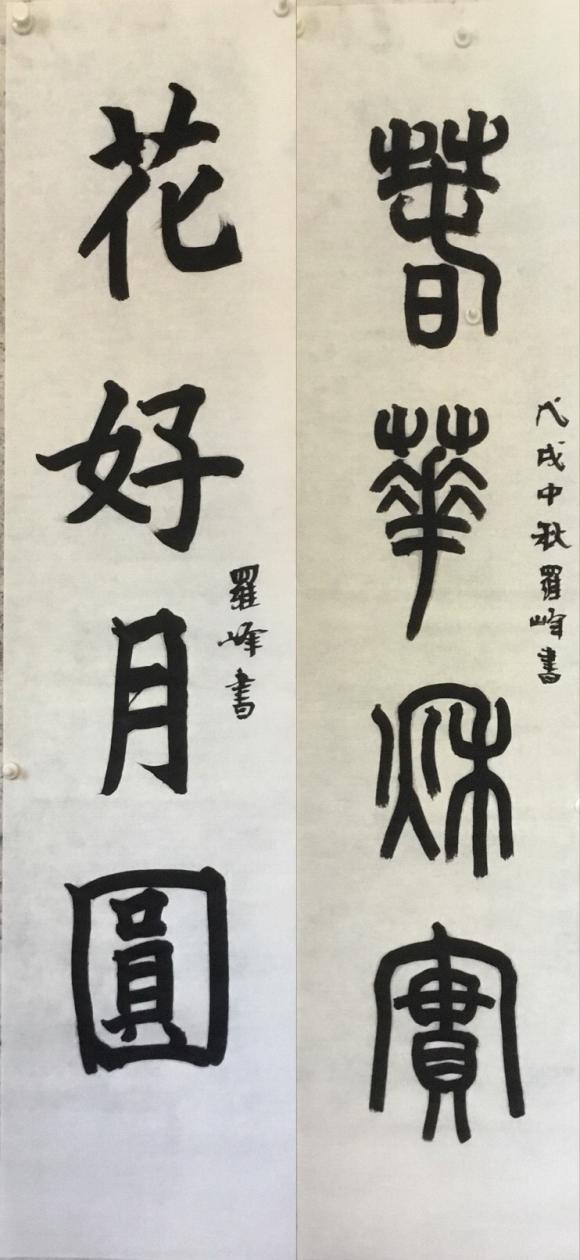 萅華秌實
戊戌中秋羅峰書
花好月圓
羅峰書